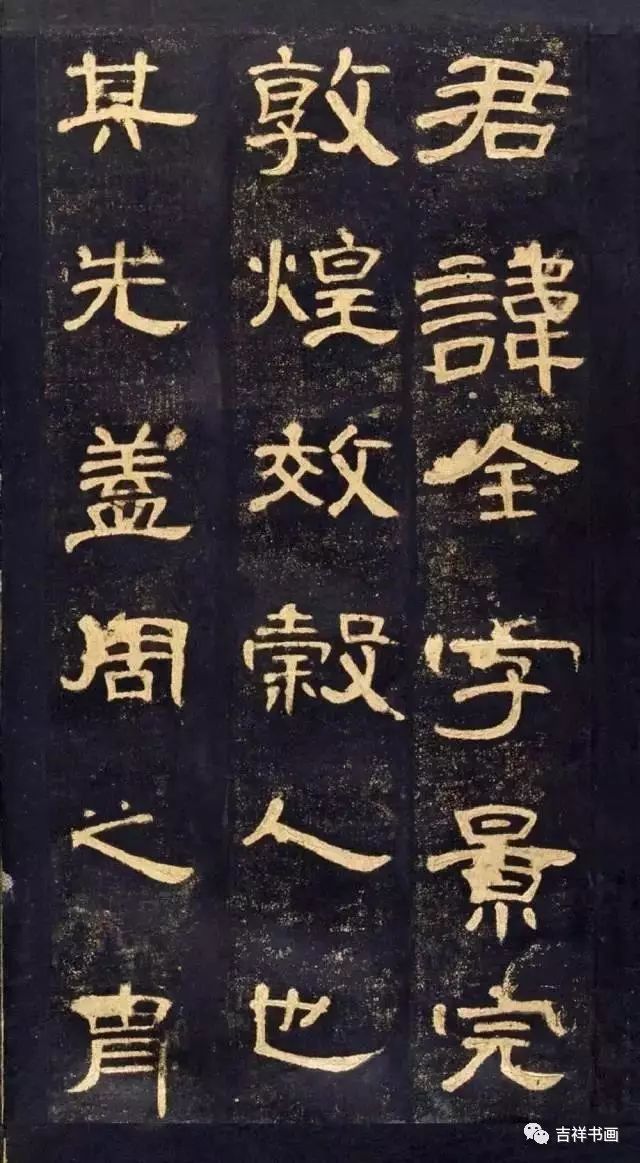 君諱全字景完
敦煌效穀人也
其先蓋周之胄
吉祥书画